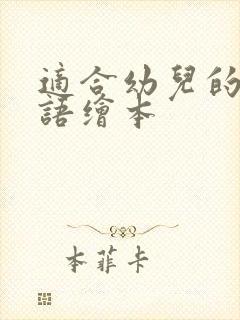 適合幼兒的
語繪本
本菲卡